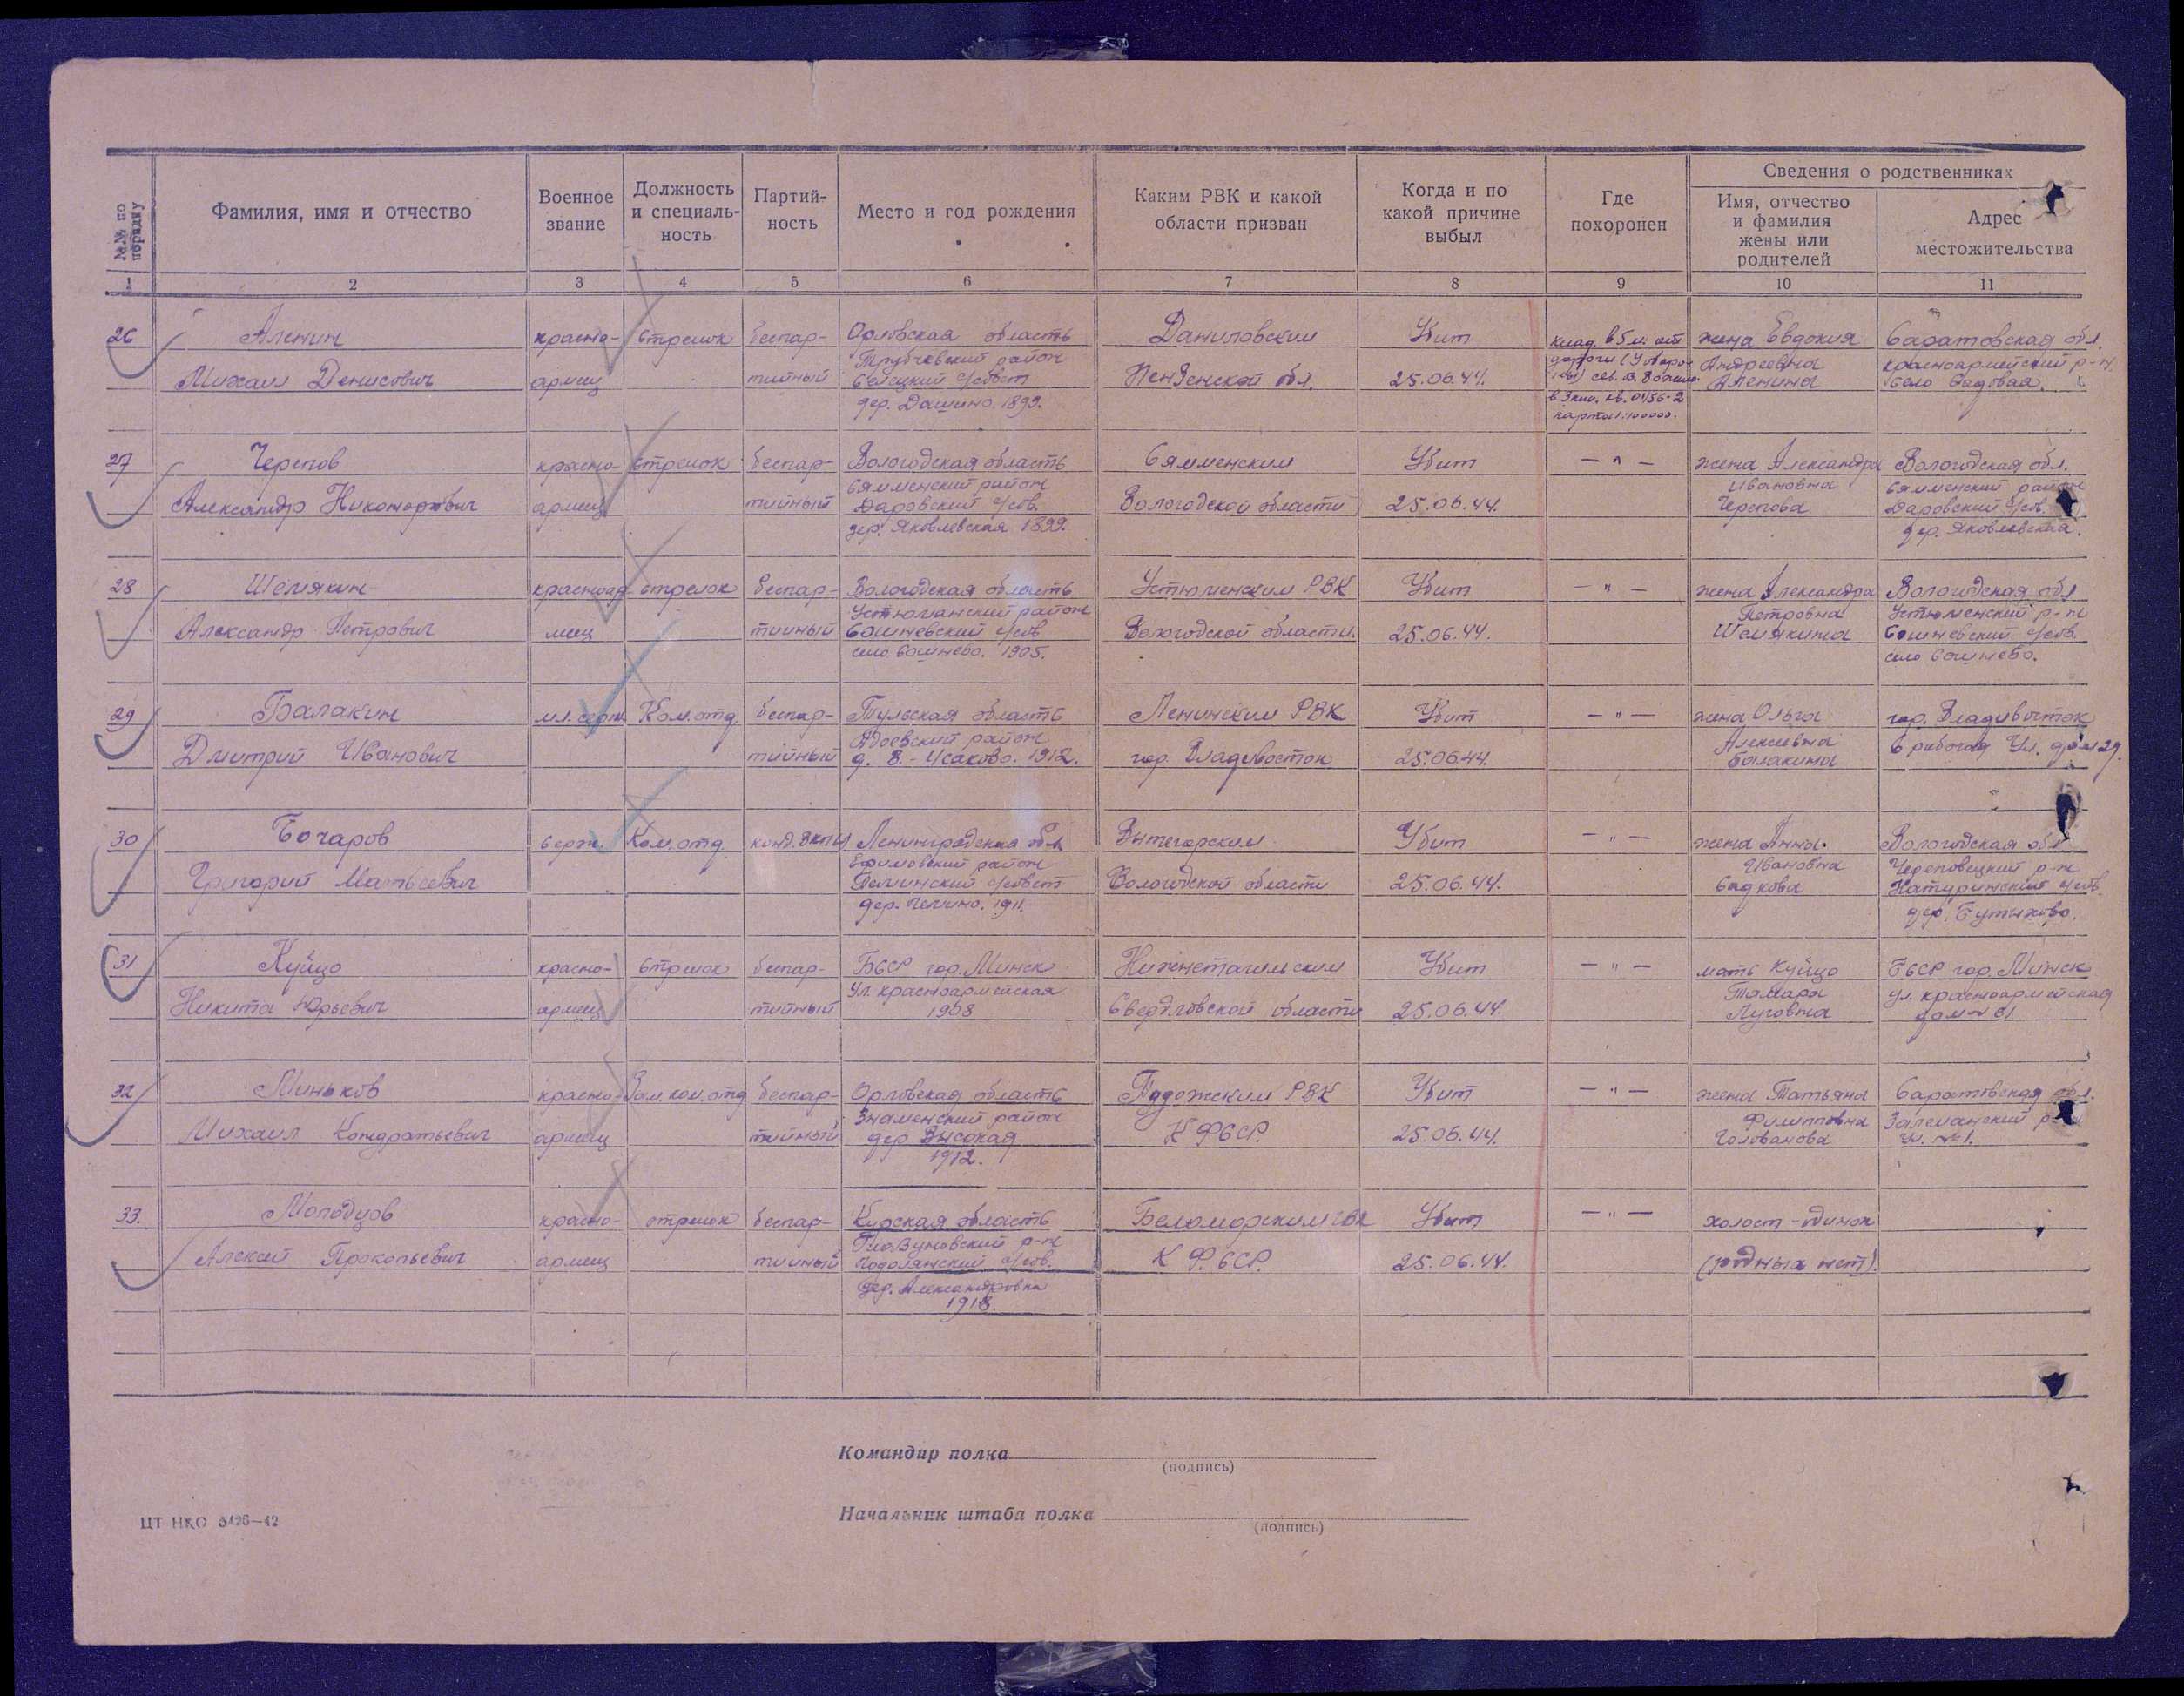 №№ по порядку
Фамилия, имя и отчество
Военное звание
Должность и специаль-ность
Партий-ность
Место и год рождения
Каким РВК и какой области призван
Когда и по какой причине выбыл
Где похоронен
Сведения о родственниках
Имя, отчество и фамилия жены или родителей
Адрес местожительства
1 2 3 4 5 6 7 8 9 10 11
26 Аленин красно- стрелок беспар- Орловская область Даниловским Убит клад. в 5 м. от жена Евдокия Саратовская обл.
Трубчевский район дороги Андреевна красноармейский р-н
Михаил Денисович армец тийный с/совет Пензенской обл. 25.06.44. Аленина село Садовая.
дер. Дашино. 1899. карта 1:100000.
27 Черепов красно- стрелок беспар- Вологодская область Сямженским Убит — " — жена Александра Вологодская обл.
Сямженский район Ивановна Сямженский район
Александр Никонорович армец тийный Даровский с/сов. Вологодской области 25.06.44. Черепова Даровский с/сов.
дер. Яковлевская 1899. дер. Яковлевская.
28 Шемякин красноар- стрелок беспар- Вологодская область Устюженским РВК Убит — " — жена Александра Вологодская обл
район Петровна р-н
Александр Петрович меец тийный с/сов Вологодской области. 25.06.44. Шемякина с/сов.
село 1905. село
29 Балакин мл. серж. Ком. отд. беспар- Тульская область Ленинским РВК Убит — " — жена Ольга гор. Владивосток
район Алексеевна
Дмитрий Иванович тийный Исаково. 1912. гор. Владивосток 25.06.44. Балакина рабочая ул. дом 29.
30 Бочаров серж. Ком. отд. канд. ВКП(б) Ленинградская обл Вытегорским Убит — " — жена Анна Вологодская обл
Ефимовский район Ивановна Череповецкий р-н
Григорий Матвеевич с/совет Вологодской области 25.06.44. Садкова с/сов.
1911. дер. Бутырково.
31 Куйцо красно- стрелок беспар- БССР гор. Минск Нижнетагильским Убит — " — мать Куйцо БССР гор. Минск
ул. красноармейская Тамара ул. красноармейская
Никита Юрьевич армец тийный 1908 Свердловской области 25.06.44. дом
32 Миньков красно- Зам. ком. отд. беспар- Орловская область Пудожским РВК Убит — " — жена Татьяна Саратовская обл.
Знаменский район Филипповна
Михаил Кондратьевич армец тийный дер Высокая КФССР. 25.06.44. Голованова
1912.
33. Молодцов красно- стрелок беспар- Курская область Беломорским РВК Убит — " — холост - одинок
р-н
Алексей Прокопьевич армец тийный с/сов. КФССР. 25.06.44. (родных нет).
дер. Александровка
1918.
Командир полка
(подпись)
Начальник штаба полка
(подпись)
ЦТ НКО 5426—42